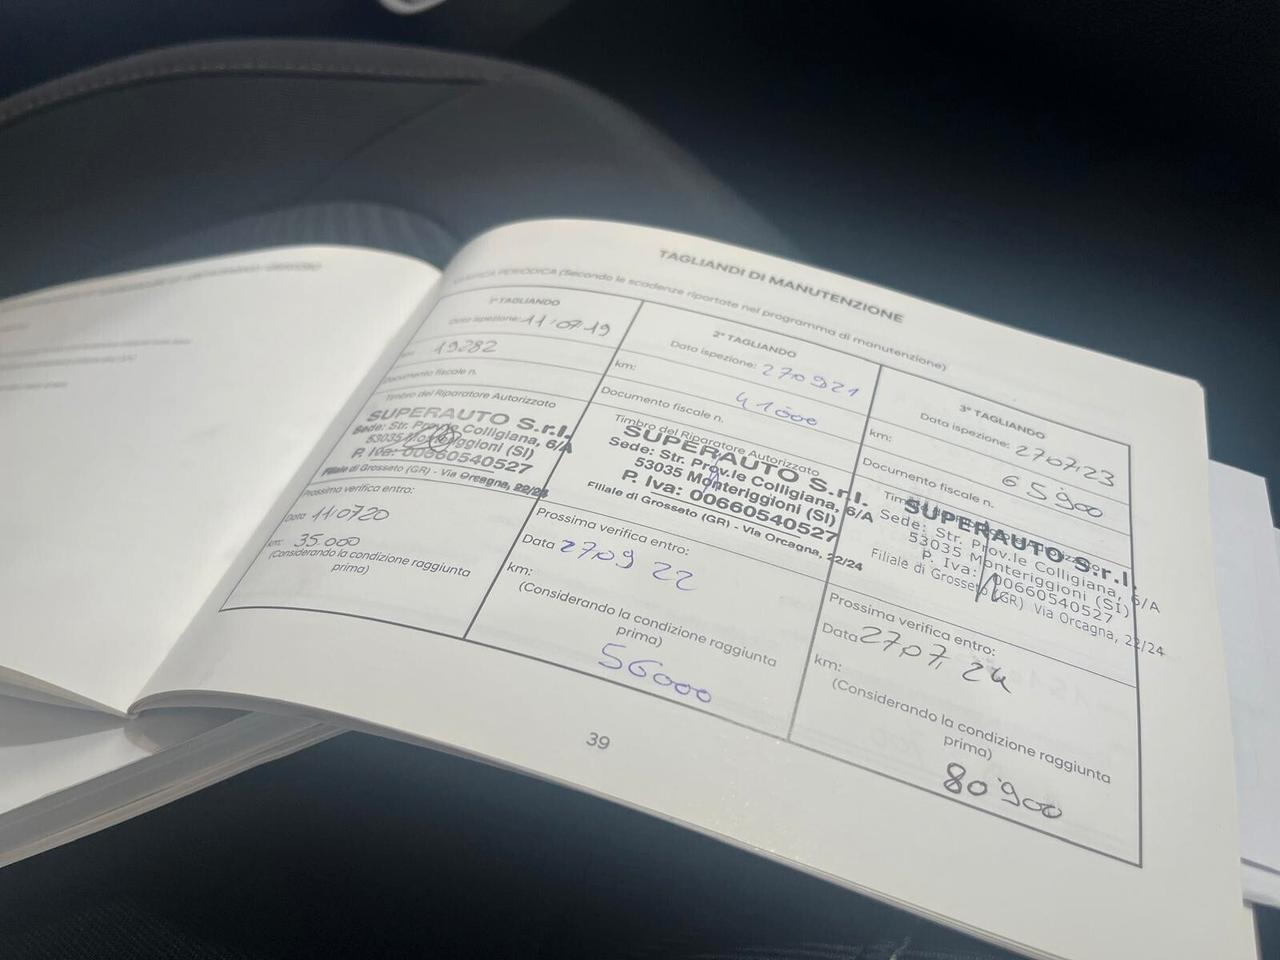 TAGLIANDI DI MANUTENZIONE
VERIFICA PERIODICA (Secondo le scadenze riportate nel programma di manutenzione)
1° TAGLIANDO
Data ispezione: 11.07.19
19282
Documento fiscale n.
Timbro del Riparatore Autorizzato
SUPERAUTO S.r.l.
Sede: Str. Prov.le Colligiana, 6/A
53035 Monteriggioni (SI)
P. Iva: 00660540527
Filiale di Grosseto (GR) - Via Orcagna, 22/24
Prossima verifica entro:
Data 11.07.20
km: 35.000
(Considerando la condizione raggiunta
prima)
2° TAGLIANDO
Data ispezione: 27.09.21
km: 41000
Documento fiscale n.
Timbro del Riparatore Autorizzato
SUPERAUTO S.r.l.
Sede: Str. Prov.le Colligiana, 6/A
53035 Monteriggioni (SI)
P. Iva: 00660540527
Filiale di Grosseto (GR) - Via Orcagna, 22/24
Prossima verifica entro:
Data 27.09 22
km:
(Considerando la condizione raggiunta
prima)
56000
3° TAGLIANDO
Data ispezione: 27.07.23
km: 65900
Documento fiscale n.
SUPERAUTO S.r.l.
Sede: Str. Prov.le Colligiana, 6/A
53035 Monteriggioni (SI)
P. Iva: 00660540527
Filiale di Grosseto (GR) Via Orcagna, 22/24
Prossima verifica entro:
Data 27.07.24
km:
(Considerando la condizione raggiunta
prima)
80.900
39